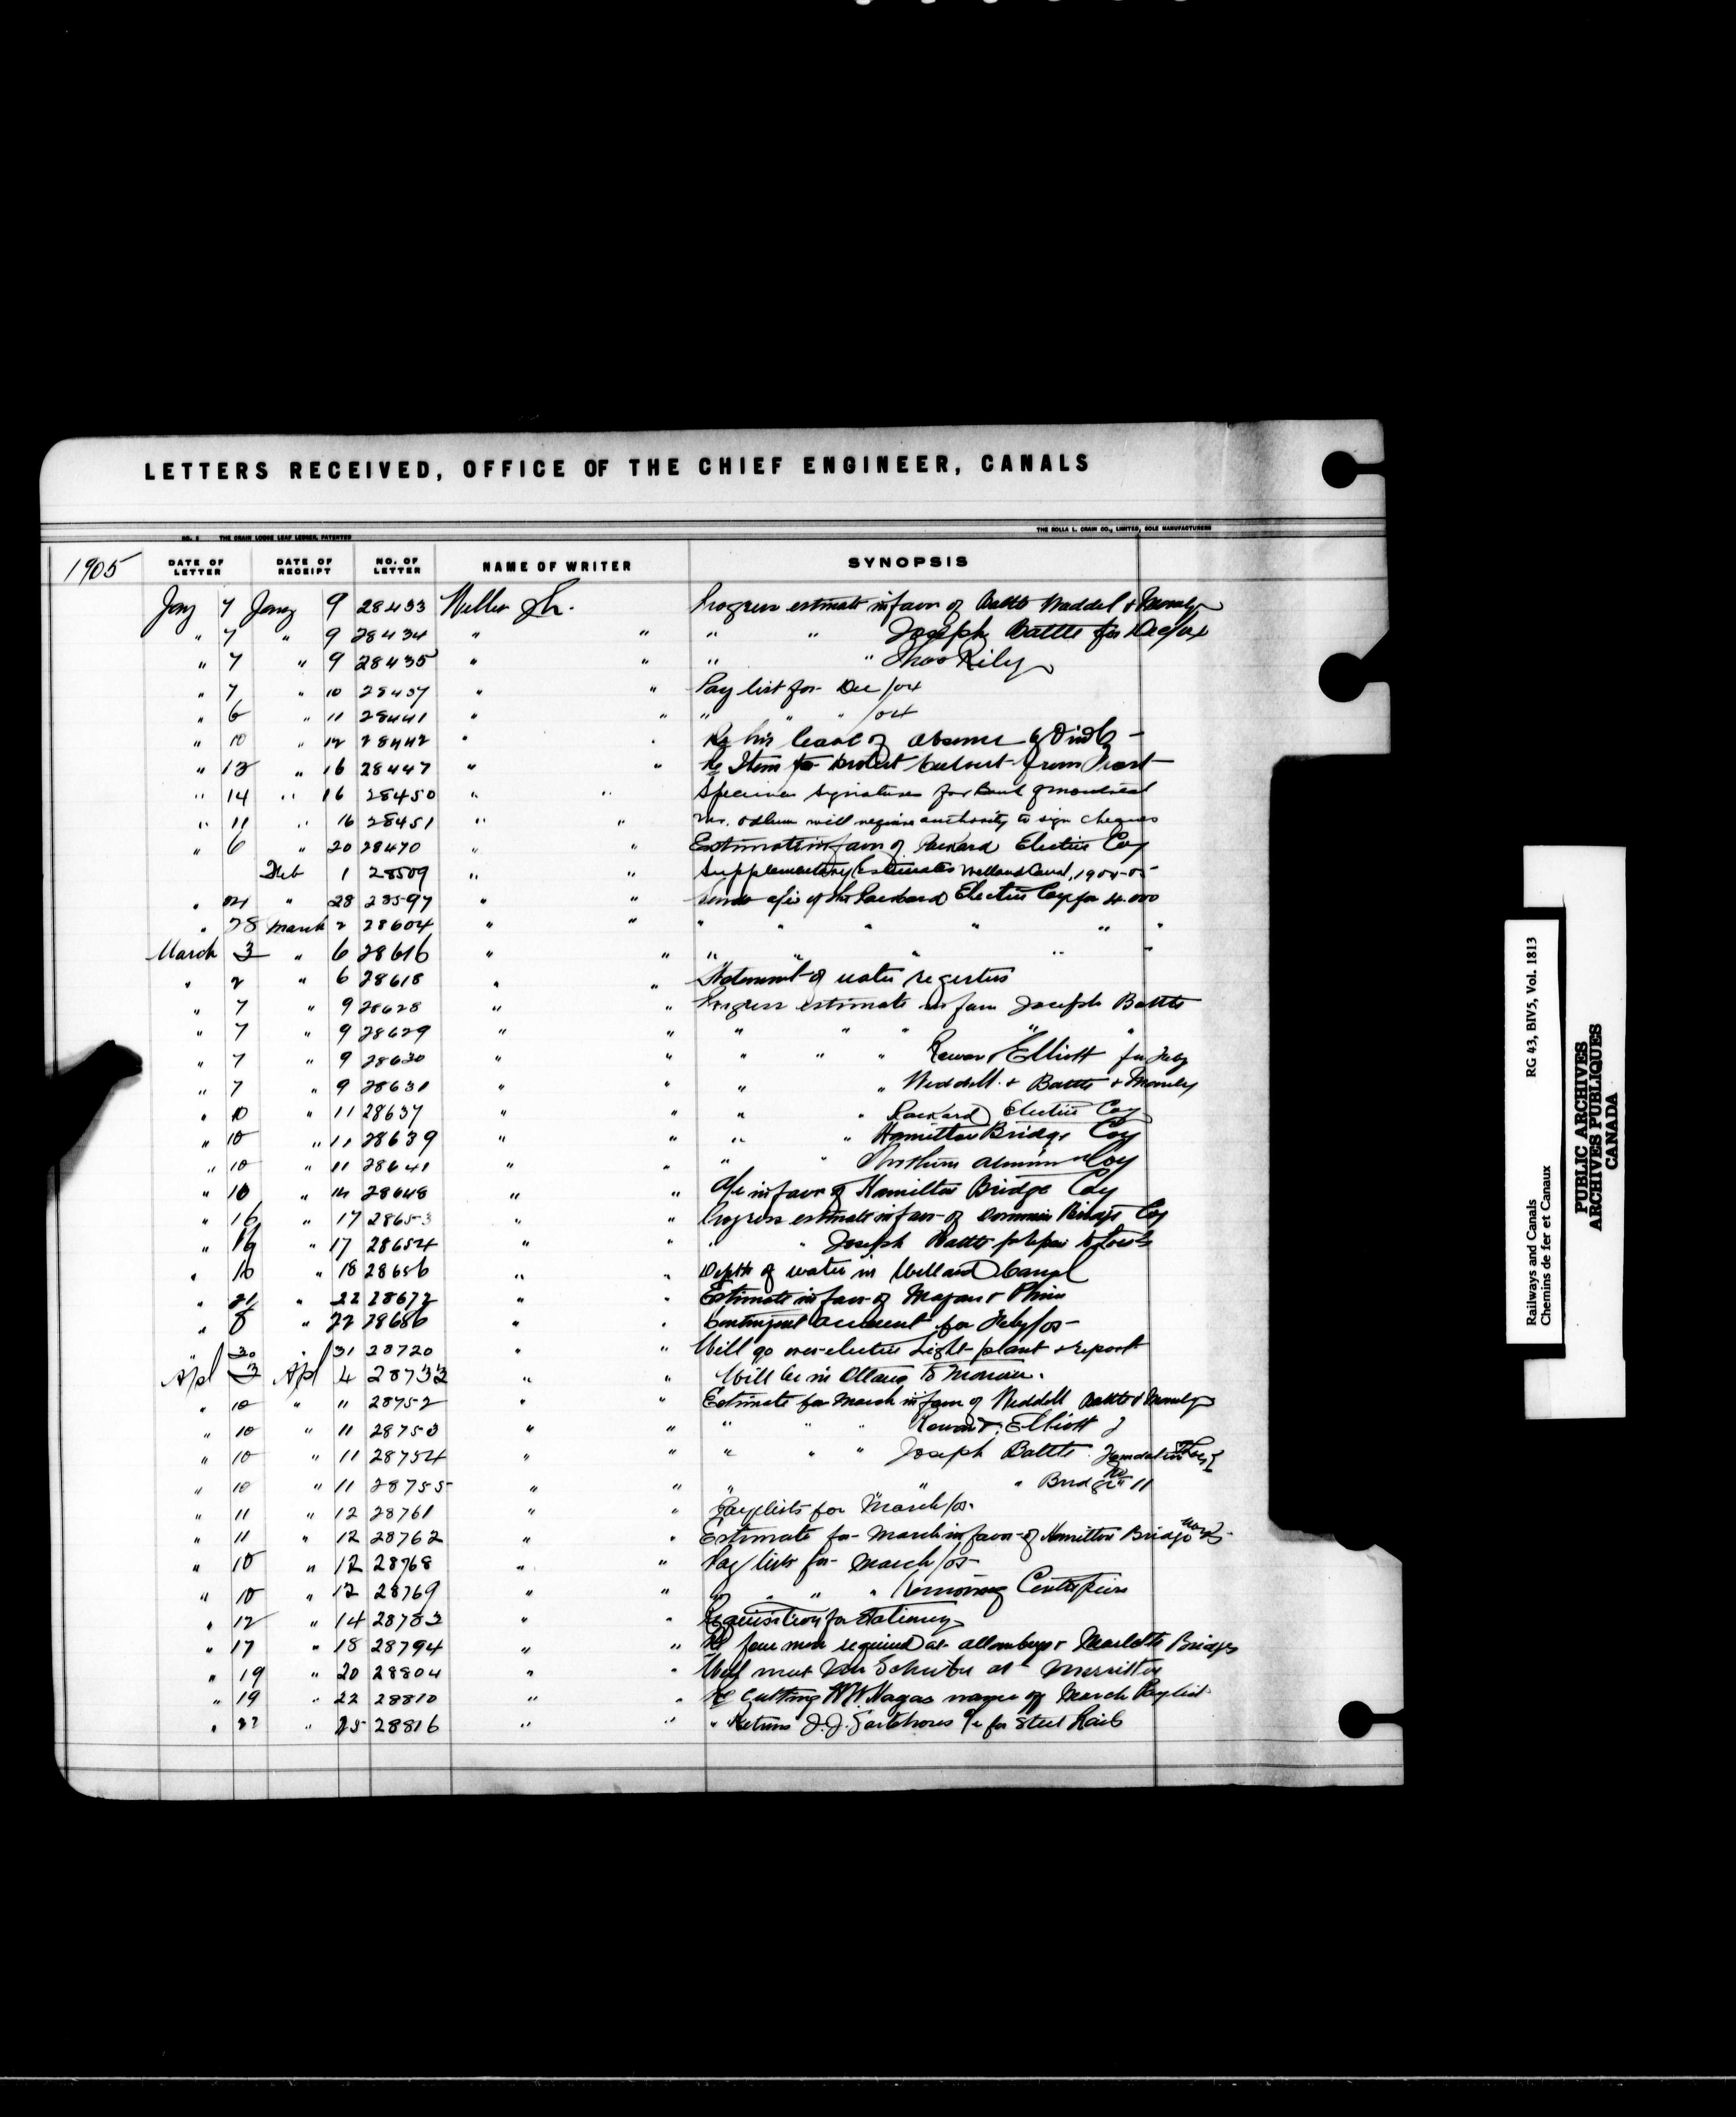 LETTERS RECEIVED, OFFICE OF THE CHIEF ENGINEER, CANALS
NO. 2 THE CRAIN LOOSE LEAF LEDGER, PATENTED THE ROLLA L. CRAIN CO., LIMITED, SOLE MANUFACTURERS
1905 DATE OF LETTER DATE OF RECEIPT NO. OF LETTER NAME OF WRITER SYNOPSIS
Jany 7 Jany 9 28433 Weller J.L. Progress estimate in favor of Battle Waddel & Manley
" 7 " 9 28434 " " " " Joseph Battle for Dec/04
" 7 " 9 28435 " " " " Thos Riley
" 7 " 10 28437 " " Pay list for Dec/04
" 6 " 11 28441 " " " " " /04
" 10 " 12 28442 " " Re his leave of absence
" 13 " 16 28447 " " Re Item to protect culvert from frost
" 14 " 16 28450 " " Specimen signatures for Bank of Montreal
" 11 " 16 28451 " " Mr. Odlum will require authority to sign cheques
" 6 " 20 28470 " " Estimate in favor of Packard Electric Coy
Feb 1 28509 " " Supplementary Estimates Welland Canal, 1904-05
" 21 " 28 28597 " " a/c of the Packard Electric Coy for 4.000
" 28 March 2 28604 " " " " " " " "
March 3 " 6 28616 " " " " " " "
" 2 " 6 28618 " " Statement of water registers
" 7 " 9 28628 " " Progress estimate in favor Joseph Battle
" 7 " 9 28629 " " " " " " "
" 7 " 9 28630 " " " " " Rowan & Elliott for Feby
" 7 " 9 28631 " " " " Weddell & Battle & Manley
" 10 " 11 28637 " " " " Packard Electric Coy
" 10 " 11 28639 " " " " Hamilton Bridge Coy
" 10 " 11 28641 " " " " Northern Aluminum Coy
" 10 " 14 28648 " " a/c in favor of Hamilton Bridge Coy
" 16 " 17 28653 " " Progress estimate in favor of Dominion Bridge Coy
" 16 " 17 28654 " " " " Joseph Battle for repair to
" 10 " 18 28656 " " Depth of water in Welland Canal
" 21 " 22 28672 " " Estimate in favor of Magann & Phin
" 8 " 22 28686 " " Contingent account for Feby/05
" 30 " 31 28720 " " Will go over electric light plant & report
Apl 3 Apl 4 28733 " " Will be in Ottawa to morrow.
" 10 " 11 28752 " " Estimate for March in favor of Weddell Battle & Manley
" 10 " 11 28753 " " " " " Rowan & Elliott
" 10 " 11 28754 " " " " " Joseph Battle Foundation
" 10 " 11 28755 " " " " " Bridge No 11
" 11 " 12 28761 " " Paylists for March/05
" 11 " 12 28762 " " Estimate for March in favor of Hamilton Bridge Works
" 10 " 12 28768 " " Pay lists for March/05
" 10 " 12 28769 " " " " " " Removing Centre piers
" 12 " 14 28783 " " Requisition for Stationery
" 17 " 18 28794 " " Re four men required at Allanburg & Marlatts Bridges
" 19 " 20 28804 " " Will meet Mr Schreiber at Merritton
" 19 " 22 28810 " " Re cutting W.W. Hagas name off March Paylist
" 22 " 25 28816 " " " Returns J.J. Gartshores a/c for Steel Rails
Railways and Canals RG 43, BIV5, Vol. 1813
Chemins de fer et Canaux
PUBLIC ARCHIVES
ARCHIVES PUBLIQUES
CANADA